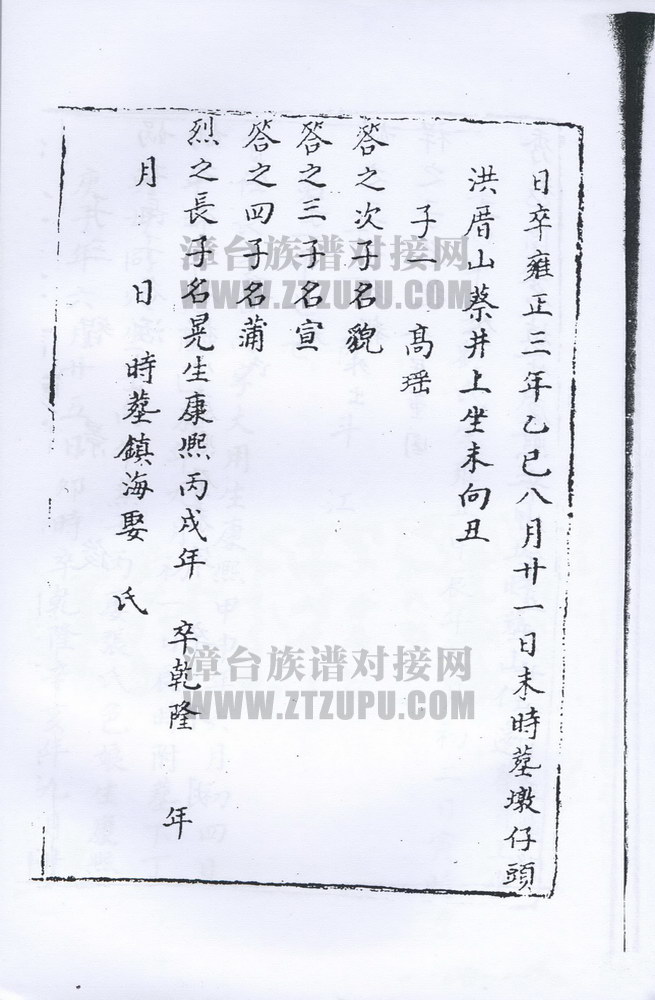 日卒雍正三年乙巳八月廿一日未時墓墩仔頭
洪厝山蔡井上坐未向丑
子一 高瑶
答之次子名貌
答之三子名宣
答之四子名蒲
烈之長子名晃生康熙丙戌年 卒乾隆 年
月 日 時墓鎮海娶 氏
漳台族谱对接网
WWW.ZTZUPU.COM
漳台族谱对接网
WWW.ZTZUPU.COM